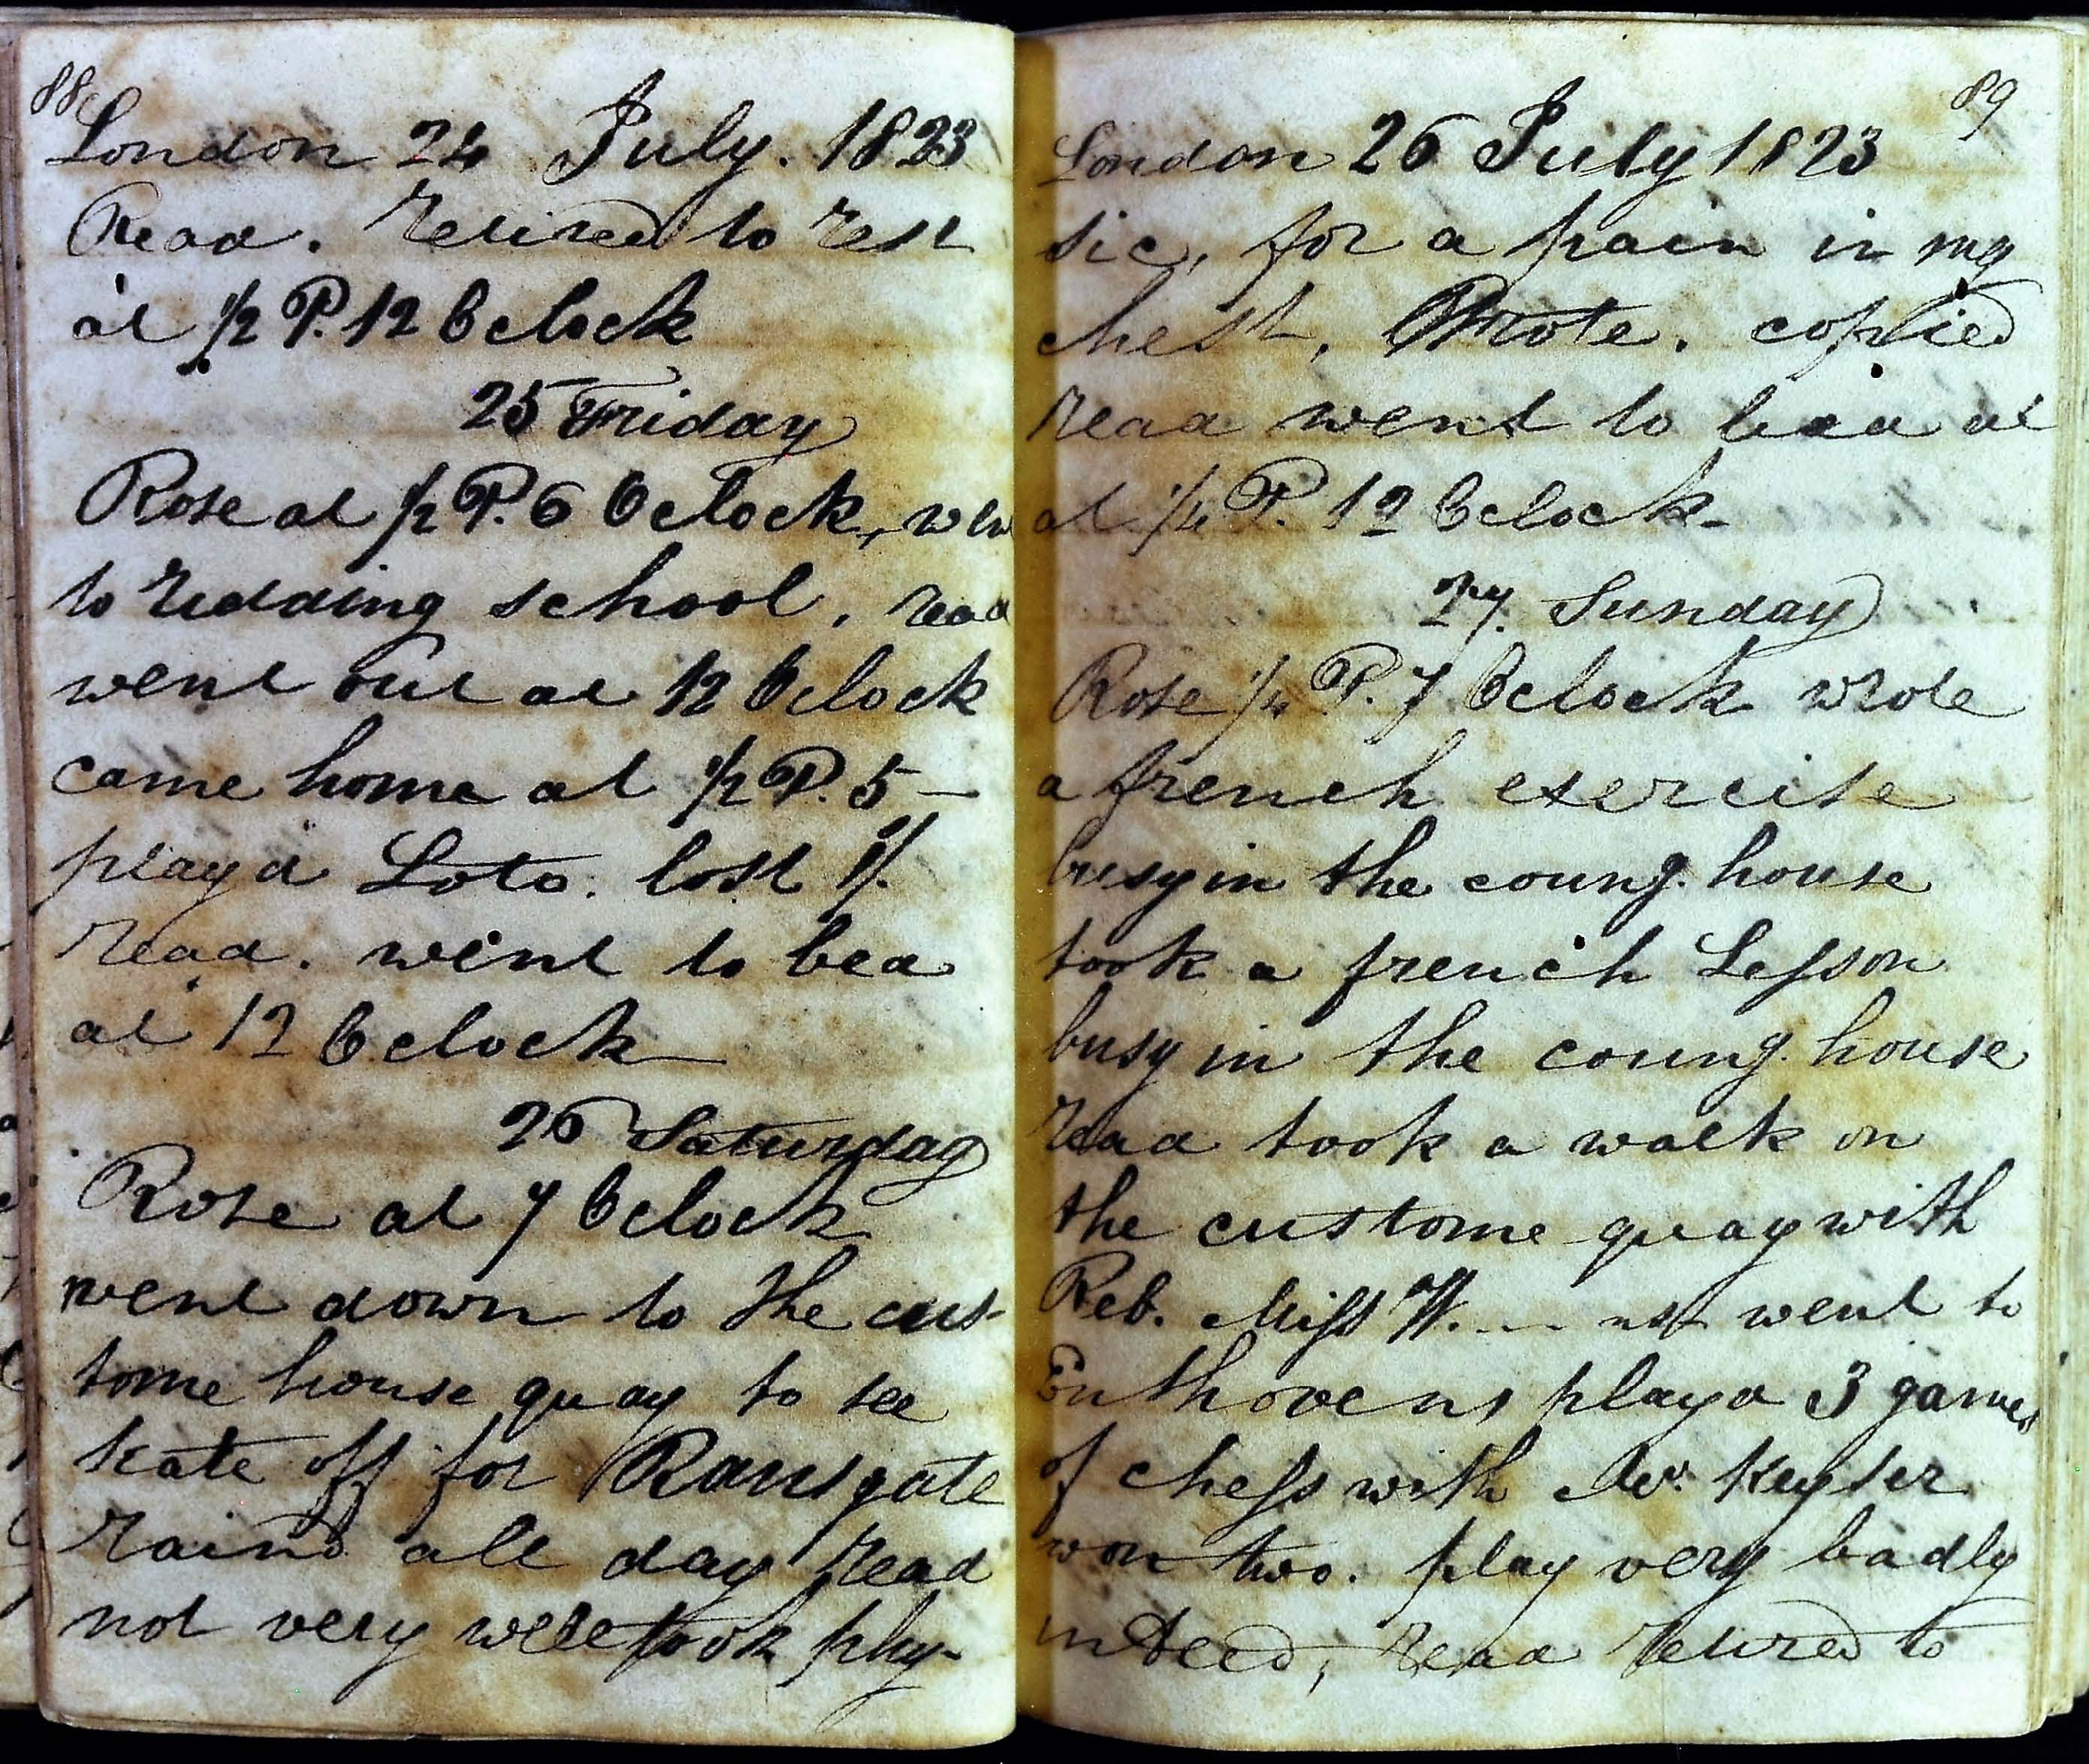 88
London 24 July. 1823
Read. Retired to rest
at 1/2 P. 12 Oclock
25 Friday
Rose at 1/2 P. 6 Oclock, wen
to redding school, read
went out at 12 Oclock
came home at 1/2 P. 5 —
playd Loto. lost 1/.
read. went to bed
at 12 Oclock —
26 Saturday
Rose at 7 Oclock
went down to the cus-
tome house quay to see
Kate off for Ramsgate
raind all day read
not very well took phy-
89
London 26 July 1823
sic, for a pain in my
chest, Wrote. copied
read went to bed at
at 1/4 P. 12 Oclock-
27. Sunday
Rose 1/4 P. 7 Oclock wrote
a french exercise
busy in the coung. house
took a french Lesson
busy in the coung. house
read took a walk on
the custome quay with
Reb. Miss W. --- went to
Enthovens playd 3 games
of chess with Mr. Keyser
won two. play very badly
indeed, read retired to